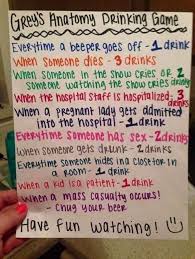 Grey's Anatomy Drinking Game
Everytime a beeper goes off - 1 drink
When someone dies - 3 drinks
When someone in the show cries or 2
someone watching the show cries drinks
When the hospital staff is hospitalized - 3
drinks
When a pregnant lady gets admitted
into the hospital - 1 drink
Everytime someone has sex - 2 drinks
When someone gets drunk - 2 drinks
Everytime someone hides in a closet or in
a room - 1 drink
When a kid is a patient - 1 drink
When a mass casualty occurs!
- chug your beer
Have fun watching! :)